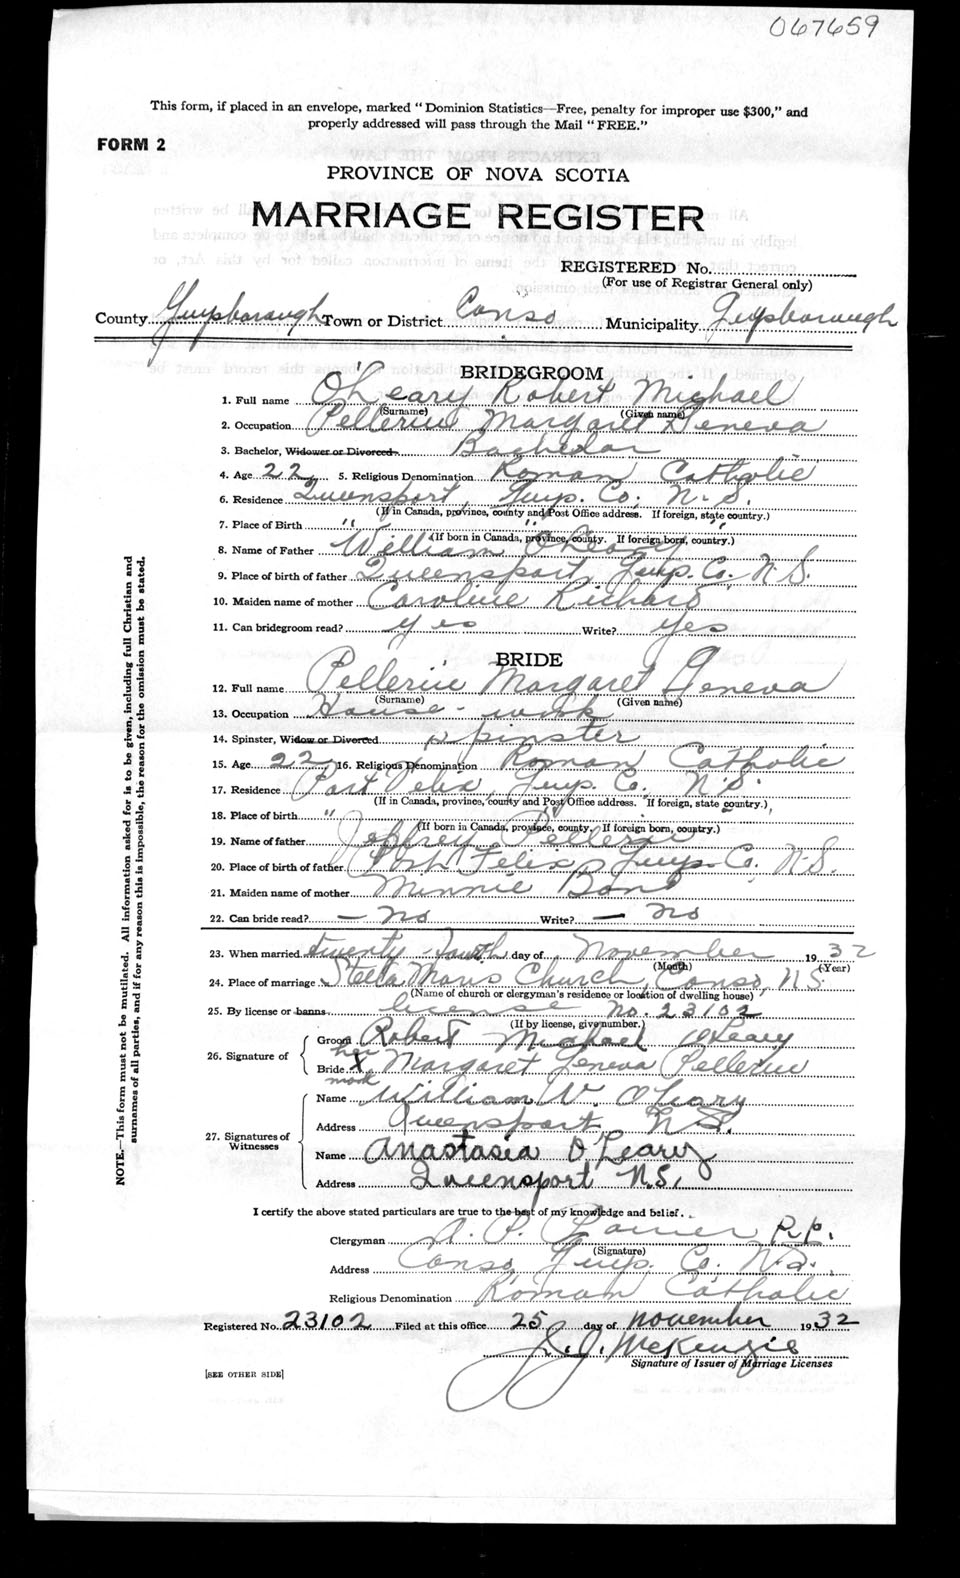 067659
This form, if placed in an envelope, marked "Dominion Statistics—Free, penalty for improper use $300," and
properly addressed will pass through the Mail "FREE."
FORM 2
PROVINCE OF NOVA SCOTIA
MARRIAGE REGISTER
REGISTERED No.
(For use of Registrar General only)
County Guysborough Town or District Canso Municipality Guysborough
BRIDEGROOM
1. Full name O'Leary Robert Michael
(Surname) (Given name)
2. Occupation Pellerine Margaret Geneva
3. Bachelor, Widower or Divorced Bachelor
4. Age 22 5. Religious Denomination Roman Catholic
6. Residence Queensport, Guys. Co. N.S.
(If in Canada, province, county and Post Office address. If foreign, state country.)
7. Place of Birth " " "
(If born in Canada, province, county. If foreign born, country.)
8. Name of Father William O'Leary
9. Place of birth of father Queensport, Guys. Co. N.S.
10. Maiden name of mother Caroline Richard
11. Can bridegroom read? yes Write? yes
BRIDE
12. Full name Pellerine Margaret Geneva
(Surname) (Given name)
13. Occupation House-work
14. Spinster, Widow or Divorced Spinster
15. Age 22 16. Religious Denomination Roman Catholic
17. Residence Port Felix, Guys. Co. N.S.
(If in Canada, province, county and Post Office address. If foreign, state country.)
18. Place of birth " " "
(If born in Canada, province, county. If foreign born, country.)
19. Name of father Jeffrey Pellerine
20. Place of birth of father Port Felix, Guys. Co. N.S.
21. Maiden name of mother Minnie
22. Can bride read? — no Write? — no
23. When married twenty-fourth day of November 1932
(Month) (Year)
24. Place of marriage Stella Maris Church, Canso, N.S.
(Name of church or clergyman's residence or location of dwelling house)
25. By license or banns license no. 23102
(If by license, give number.)
26. Signature of
Groom Robert Michael O'Leary
her
Bride X Margaret Geneva Pellerine
mark
27. Signatures of Witnesses
Name William V. O'Leary
Address Queensport N.S.
Name Anastasia O'Leary
Address Queensport N.S.
I certify the above stated particulars are true to the best of my knowledge and belief.
Clergyman A. P. P.P.
(Signature)
Address Canso, Guys. Co. N.S.
Religious Denomination Roman Catholic
Registered No. 23102 Filed at this office 25 day of November 1932
McKenzie
Signature of Issuer of Marriage Licenses
[SEE OTHER SIDE]
NOTE.—This form must not be mutilated. All information asked for is to be given, including full Christian and
surnames of all parties, and if for any reason this is impossible, the reason for the omission must be stated.